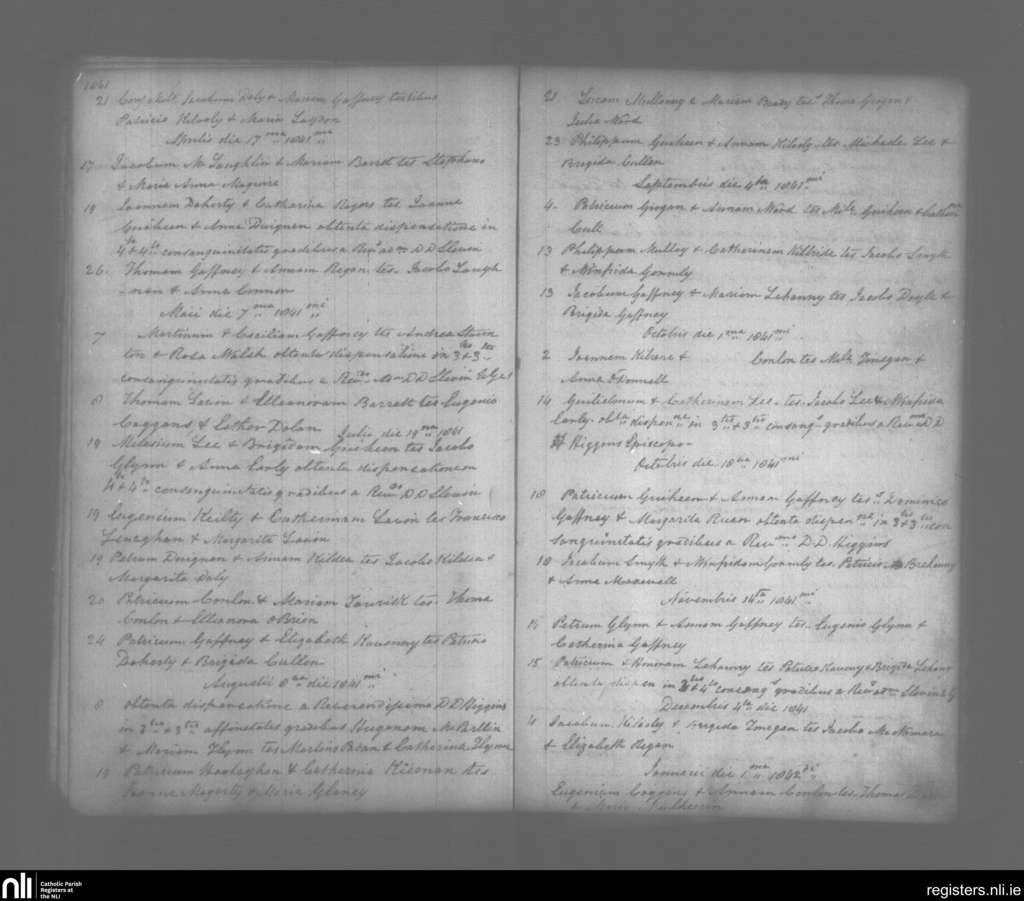 1841
21 Conj Matr. Jacobum Daly & Mariam Gaffney testibus
Patricio Kilroly & Maria Layson
Aprilis die 17 ma 1841 mi
17 Jacobum Mc Loughlin & Mariam Barett tes Stephano
& Maria Anna Maguire
19 Doherty & Catharina Rogers tes Joanne
Guiheen & Anna Duignan obtenta dispensatione in
4to & 4to consanguinitatis gradibus a Revmo ac D D Slevin
26. Thomam Gaffney & Annam Regan tes. Jacobo Laugh
-nan & Anna Connor
Maii die 7 ma 1841 mi
7 Martinum & Caeciliam Gaffney tes Andrea
& Rosa Walsh obtenta dispensatione in 3tio & 3tio
consanguinitatis gradibus a Revmo D D Slevin
8 Thomam Lavin & Elleanoram Barrett tes Eugenio
Coggans & Esther Dolan Julii die 19 ma 1841
19 Milesium Lee & Brigidam Guiheen tes Jacobo
Glynn & Anna Early obtenta dispensationem
4to & 4to consanguinitatis gradibus a Revmo D D Slevin
19 Eugenium Keilty & Cathermam Lavin tes Francisco
Lenaghan & Margarita Lavin
19 Petrum Duignan & Annam Kildea tes Jacobo Kildea &
Margarita Daly
20 Patricum Conlon & Mariam tes. Thoma
Conlon & Elleanora OBrien
24 Patricum Gaffney & Elizabeth Kaveny tes Petrus
Doherty & Brigida Cullen
Augustii 8 va die 1841 mi
8 obtenta dispensatione a Reverendissimo D D Higgins
in 3tio & 3tio affinitatis gradibus Hugonem McPartlin
& Mariam Flynn tes Martino Beirn & Catherina Flynn
19 Patricum & Catherina Kiernan tes
Joanne Hagerty & Maria Glancy
21 Lucam Mullaney & Mariam Brady tes Thoma Grogan &
Julia Ward
23 Philippum Guiheen & Annam Kilroly tes Michaele Lee &
Brigida Cullen
Septembris die 4ta 1841 mi
4. Patricum Grogan & Annam Ward tes Mich Guiheen &
Cull
13 Philippum Mulloy & Catherinam Kilbride tes Jacobo Smyth
& Winfrida Gormly
13 Jacobum Gaffney & Mariam Lehanny tes Jacobo Doyle &
Brigida Gaffney
Octobris die 1 ma 1841 mi
2 Joannem Kilbare & Conlon tes &
Anna ODonnell
14 Gulielmum & Catherinam Lee tes. Jacobo Lee & Winfrida
Early obta dispen ne in 3tio & 3tio consang gradibus a Revmo D D
Higgins Episcopo
Octobris die 18 va 1841 mi
18 Patricum Guiheen & Annam Gaffney tes Dominico
Gaffney & Margarita Ruan obtenta dispen ne in 3tio & 3tio con
sanguinitatis gradibus a Revmo D.D. Higgins
18 Jacobum Smyth & Winfridam Gormly tes Patricio Brehenny
& Anna Maxwell
Novembris 14ta 1841 mi
14 Petrum Glynn & Annam Gaffney tes. Eugenio Glynn &
Catherina Gaffney
15 Patricum & Honoram Lehanny tes Petrus Kaveny & Brigida Lehany
obtenta dispen in 4to & 4to consang gradibus a Revmo Slevin
Decembris 4ta die 1841
4 Jacobum Kilroly & Brigida tes Jacobo MacNamara
& Elizabeth Regan
Januarii die 1 ma 1842
Eugenium Coggens & Annam Conlon tes. Thomas
& Maria
nli
Catholic Parish
Registers at
the NLI
registers.nli.ie